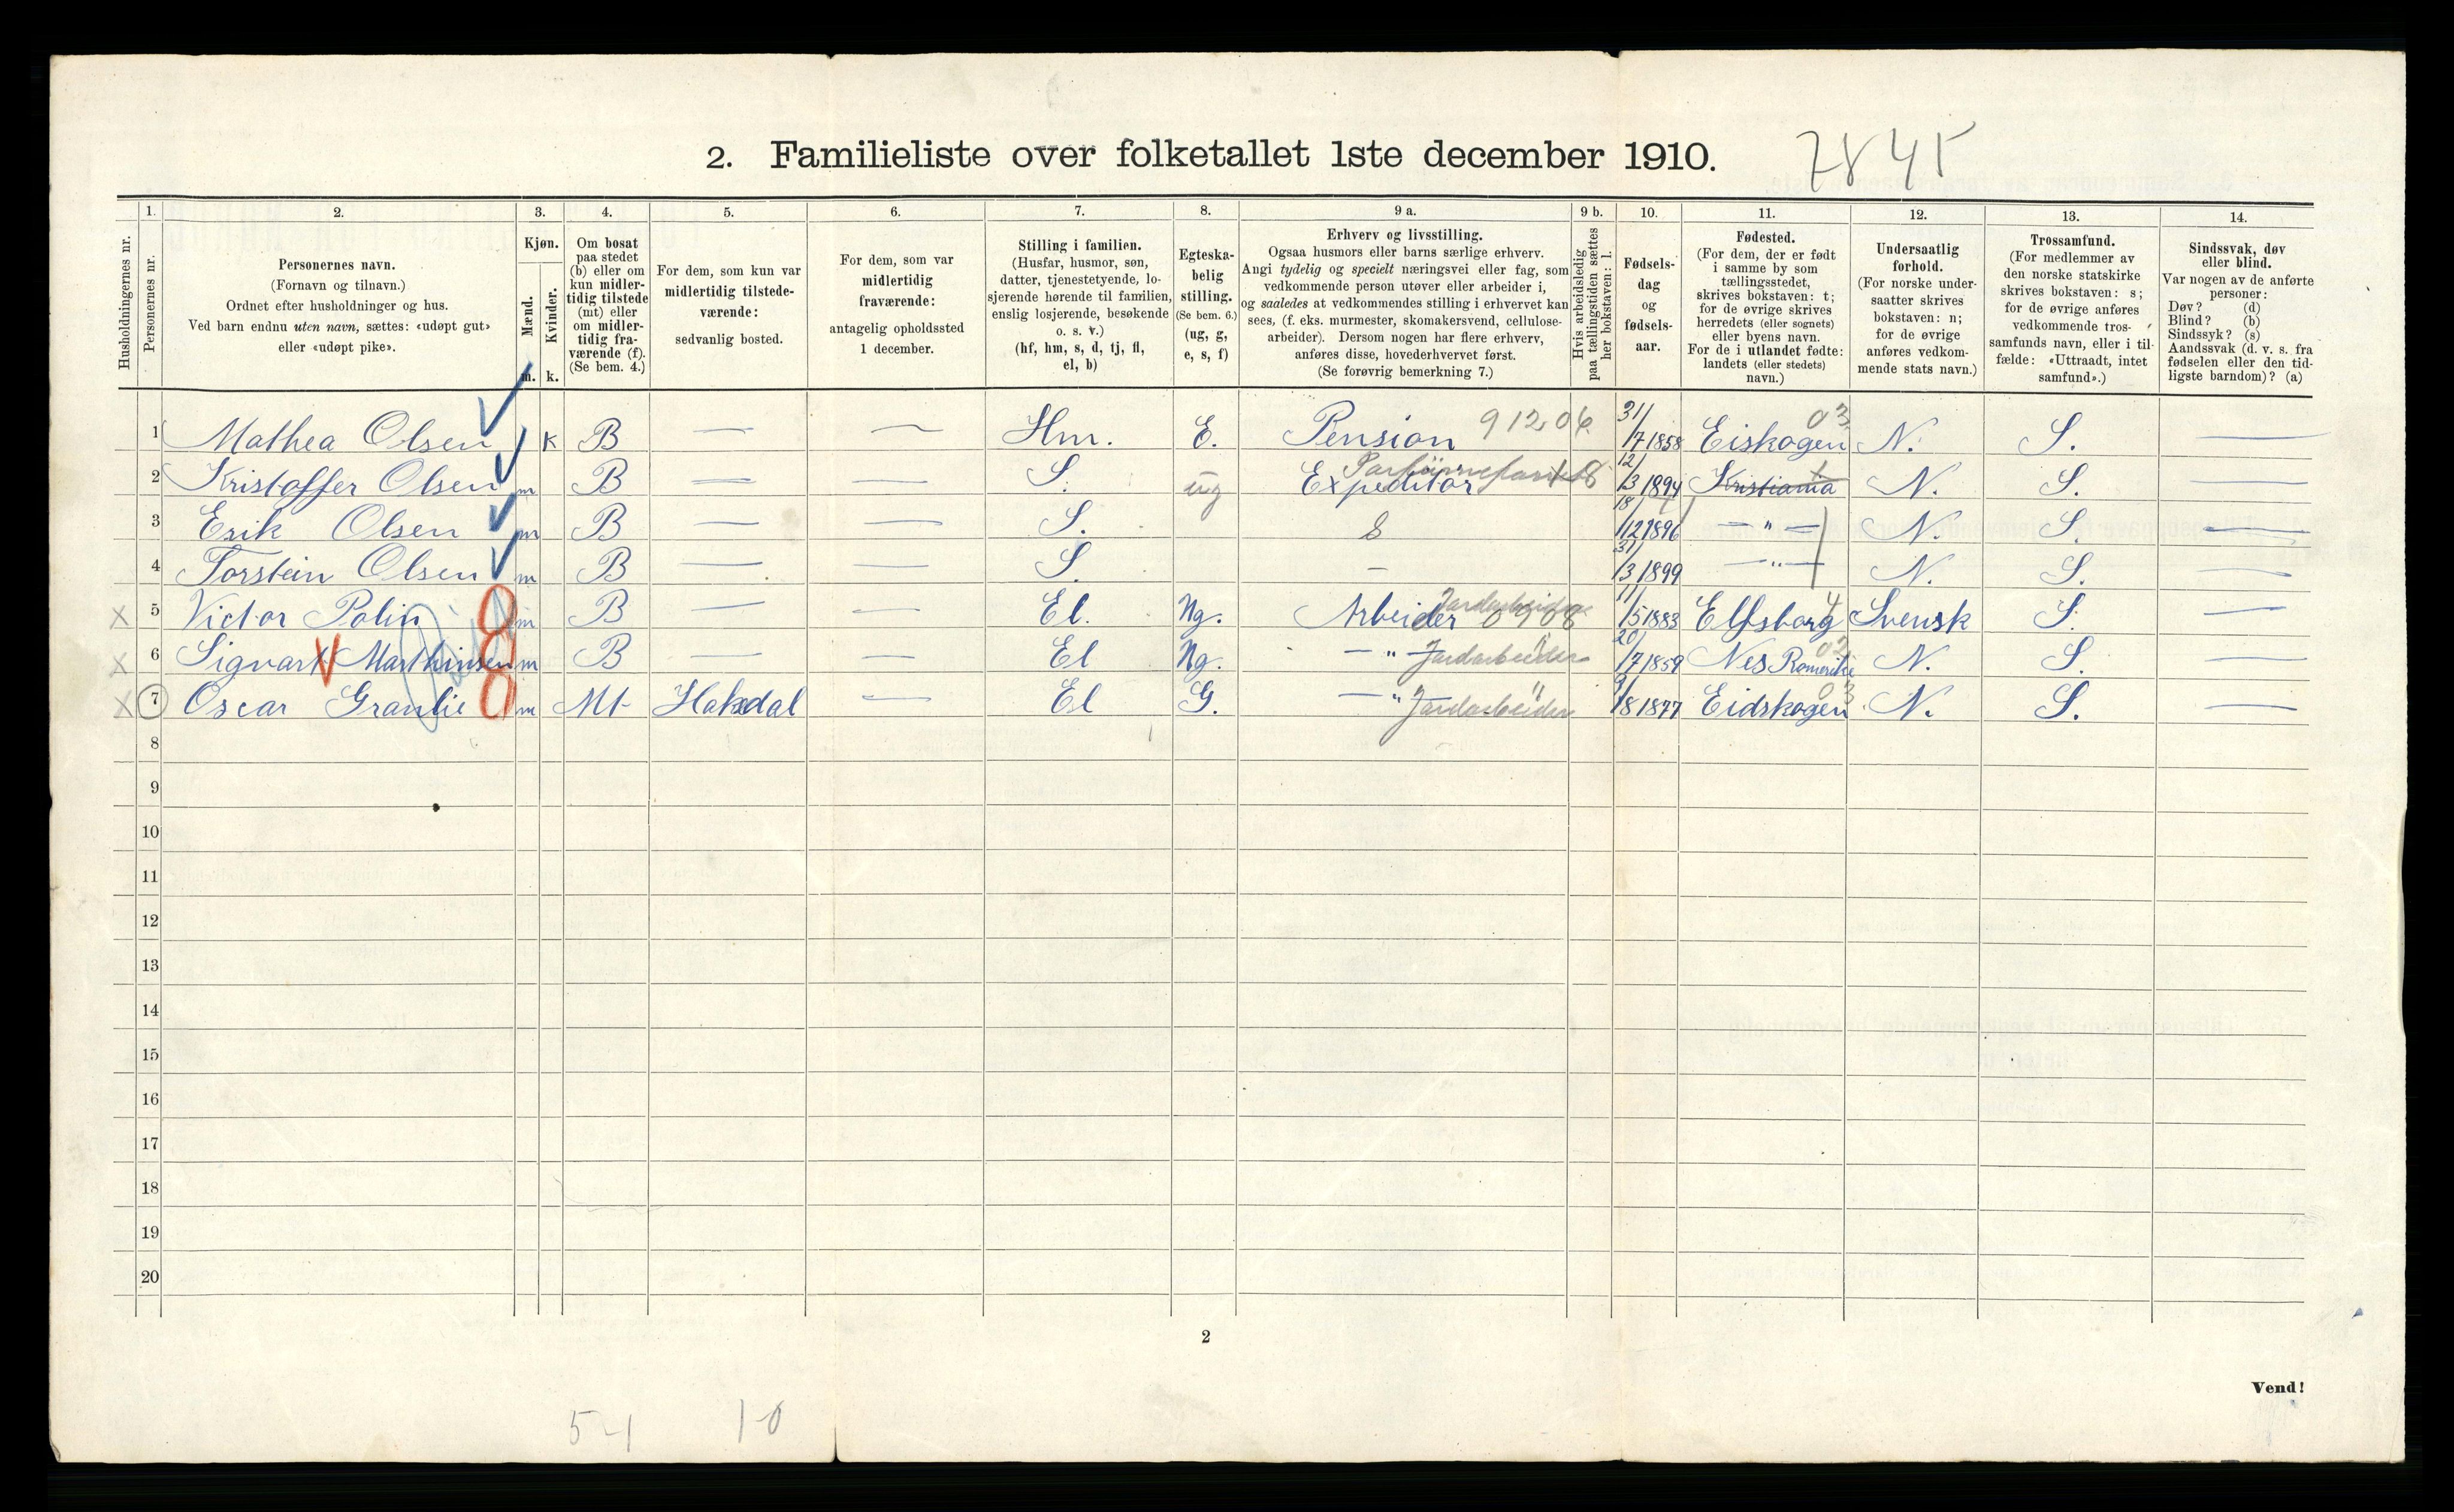 2. Familieliste over folketallet 1ste december 1910. 7845
1. 2. 3. 4. 5. 6. 7. 8. 9 a. 9 b. 10. 11. 12. 13. 14.
Husholdningernes nr.
Personernes nr.
Personernes navn.
(Fornavn og tilnavn.)
Ordnet efter husholdninger og hus.
Ved barn endnu uten navn, sættes: «udøpt gut»
eller «udøpt pike».
Kjøn.
Mænd.
Kvinder.
m. k.
Om bosat
paa stedet
(b) eller om
kun midler-
tidig tilstede
(mt) eller
om midler-
tidig fra-
værende (f).
(Se bem. 4.)
For dem, som kun var
midlertidig tilstede-
værende:
sedvanlig bosted.
For dem, som var
midlertidig
fraværende:
antagelig opholdssted
1 december.
Stilling i familien.
(Husfar, husmor, søn,
datter, tjenestetyende, lo-
sjerende hørende til familien,
enslig losjerende, besøkende
o. s. v.)
(hf, hm, s, d, tj, fl,
el, b)
Egteska-
belig
stilling.
(Se bem. 6.)
(ug, g,
e, s, f)
Erhverv og livsstilling.
Ogsaa husmors eller barns særlige erhverv.
Angi tydelig og specielt næringsvei eller fag, som
vedkommende person utøver eller arbeider i,
og saaledes at vedkommendes stilling i erhvervet kan
sees, (f. eks. murmester, skomakersvend, cellulose-
arbeider). Dersom nogen har flere erhverv,
anføres disse, hovederhvervet først.
(Se forøvrig bemerkning 7.)
Hvis arbeidsledig
paa tællingstiden sættes
her bokstaven: l.
Fødsels-
dag
og
fødsels-
aar.
Fødested.
(For dem, der er født
i samme by som
tællingsstedet,
skrives bokstaven: t;
for de øvrige skrives
herredets (eller sognets)
eller byens navn.
For de i utlandet fødte:
landets (eller stedets)
navn.)
Undersaatlig
forhold.
(For norske under-
saatter skrives
bokstaven: n;
for de øvrige
anføres vedkom-
mende stats navn.)
Trossamfund.
(For medlemmer av
den norske statskirke
skrives bokstaven: s;
for de øvrige anføres
vedkommende tros-
samfunds navn, eller i til-
fælde: «Uttraadt, intet
samfund».)
Sindssvak, døv
eller blind.
Var nogen av de anførte
personer:
Døv? (d)
Blind? (b)
Sindssyk? (s)
Aandssvak (d. v. s. fra
fødselen eller den tid-
ligste barndom)? (a)
1 Mathea Olsen k B — — Hm. E. Pension 912,06 31/7 1858 Eiskogen 03 N. S. —
2 Kristoffer Olsen m B — — S. ug Expeditør 12/3 1894 Kristiania t N. S. —
3 Erik Olsen m B — — S. 18/12 1896 — " — N. S. —
4 Torstein Olsen m B — — S. — 31/3 1899 — " — N. S. —
X 5 Victor Polin m B — — El. Ug. Arbeider Jordarbeider 0908 11/5 1883 Elfsborg 4 Svensk S. —
X 6 Sigvart Marthinsen m B — — El Ug. — " — Jordarbeider 20/7 1859 Nes Romerike 02 N. S. —
X 7 Oscar Granlie m Mt Hakedal — El G. — " — Jordarbeider 9/8 1877 Eidskogen 03 N. S. —
8
9
10
11
12
13
14
15
16
17
18
19
20
2
Vend!
5-1 1-0